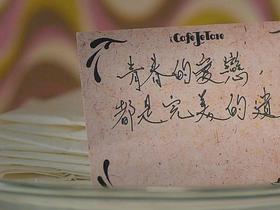 iCafeJeTore
青春的愛戀，
都是完美的